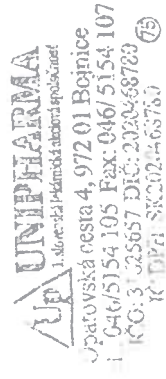 Up UNIPHARMA
1. slovenská lekárnická akciová spoločnosť
Opatovská cesta 4, 972 01 Bojnice
046/5154 105 Fax: 046/5154 107
IČO: 31 625657 DIČ:
75